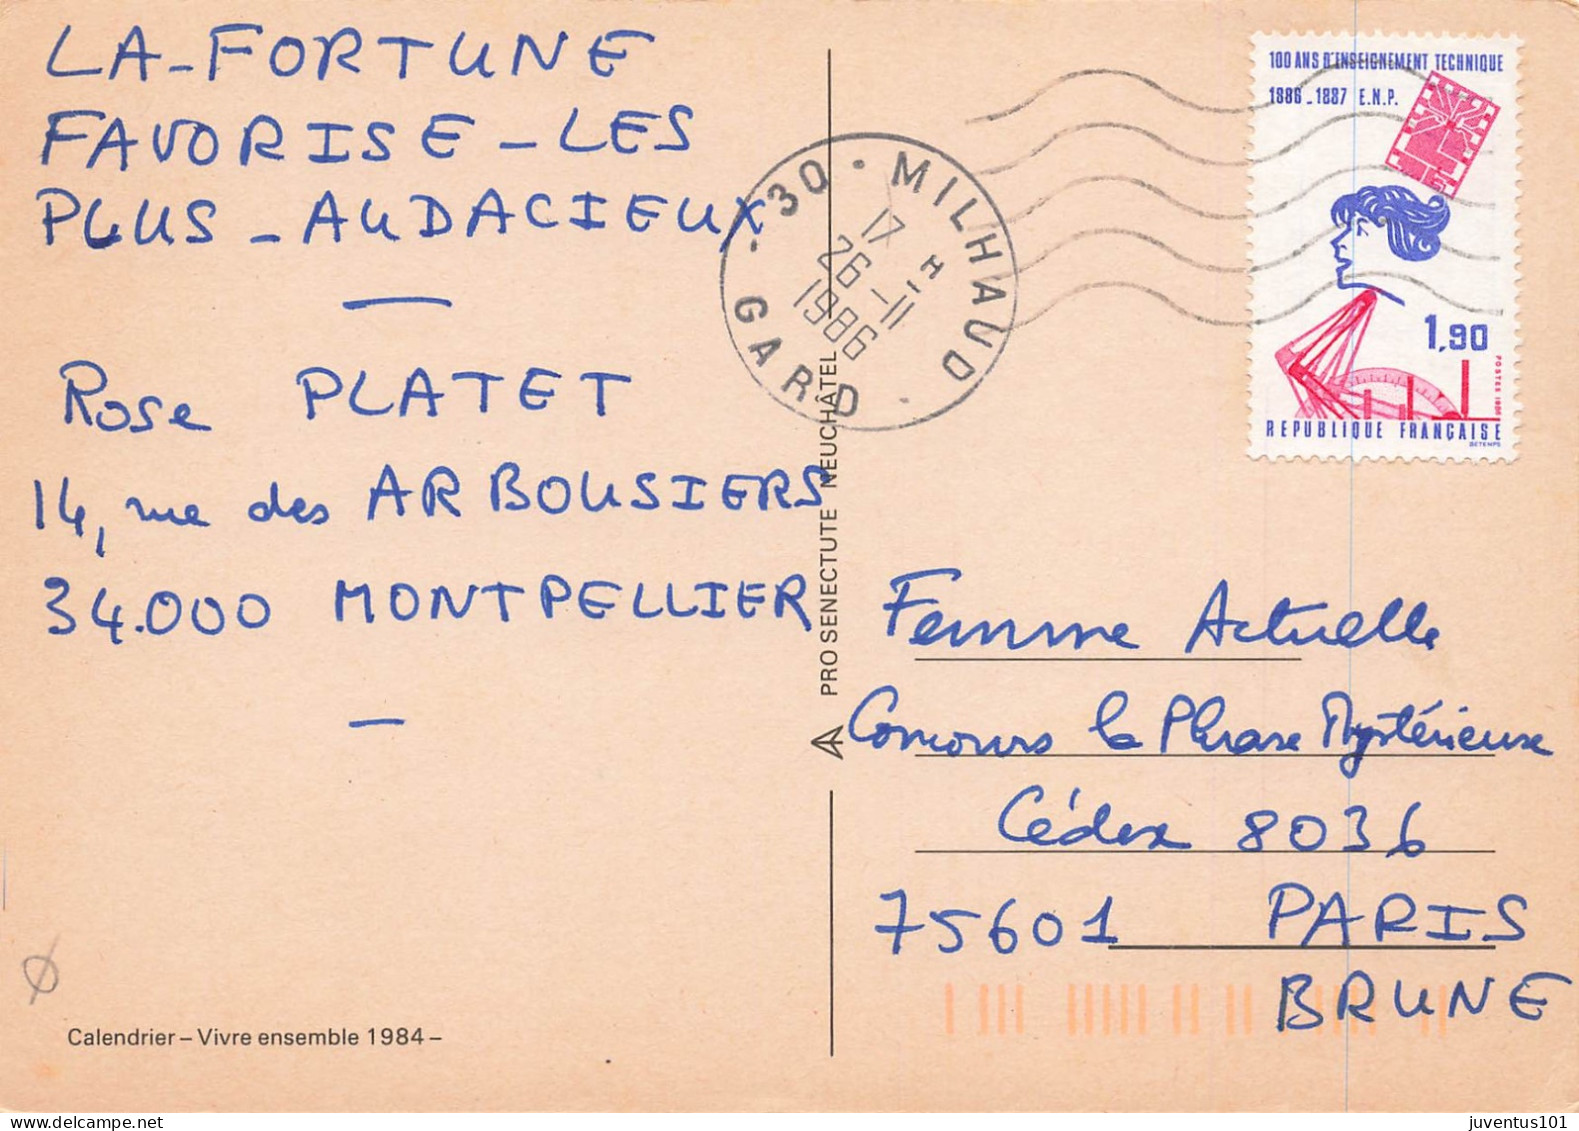 LA-FORTUNE
FAVORISE-LES
PLUS-AUDACIEUX
Rose PLATET
14, rue des ARBOUSIERS
34.000 MONTPELLIER
Calendrier – Vivre ensemble 1984 –
PRO SENECTUTE NEUCHÂTEL
30 · MILHAUD
17 H
26-11
1986
GARD
100 ANS D'ENSEIGNEMENT TECHNIQUE
1886-1887 E.N.P.
1,90
POSTES 1986
REPUBLIQUE FRANÇAISE
BETEMPS
Femme Actuelle
Concours la Phrase Mystérieuse
Cédex 8036
75601 PARIS
BRUNE
juventus101